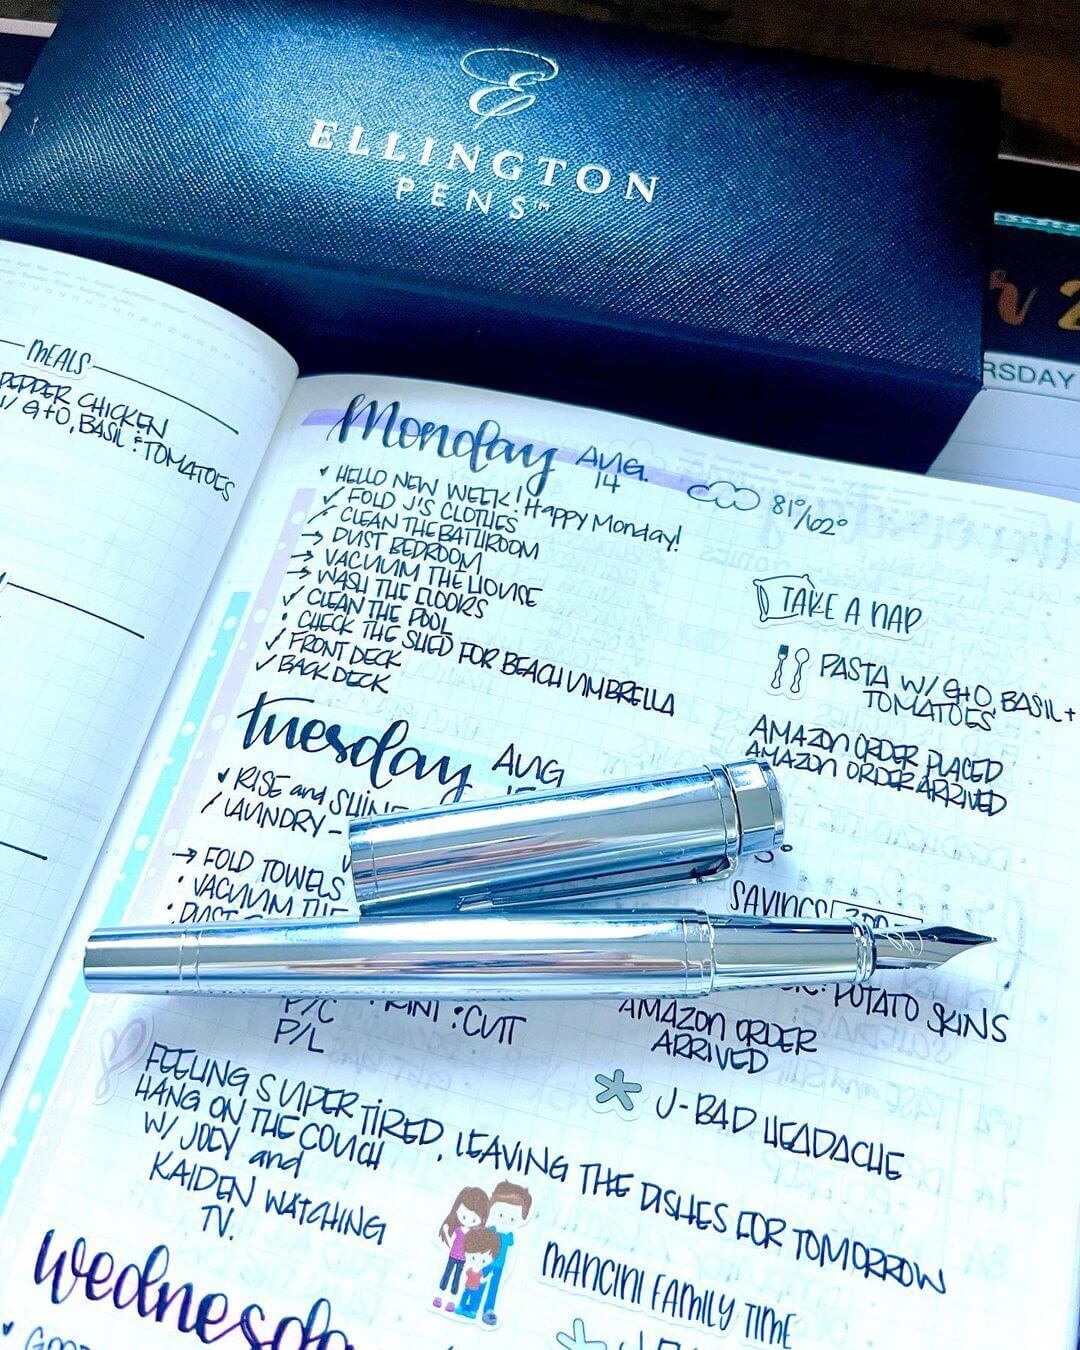 E
ELLINGTON
PENS™
RSDAY
MEALS
PEPPER CHICKEN
W/ G+O, BASIL + TOMATOES
Monday AUG. 14
81°/62°
HELLO NEW WEEK! Happy Monday!
✓ FOLD J'S CLOTHES
/ CLEAN THE BATHROOM
→ DUST BEDROOM
→ VACUUM THE HOUSE
→ WASH THE FLOORS
✓ CLEAN THE POOL
• CHECK THE SHED FOR BEACH UMBRELLA
✓ FRONT DECK
✓ BACK DECK
TAKE A NAP
PASTA W/ G+O, BASIL +
TOMATOES
AMAZON ORDER PLACED
AMAZON ORDER ARRIVED
Tuesday AUG
RISE and SHINE
/ LAUNDRY –
→ FOLD TOWELS
• VACUUM THE
• DUST
SAVINGS
POTATO SKINS
P/C
P/L
: CUT
AMAZON ORDER
ARRIVED
J-BAD HEADACHE
FEELING SUPER TIRED, LEAVING THE DISHES FOR TOMORROW
HANG ON THE COUCH
W/ JOEY and
KAIDEN WATCHING
TV.
MANCINI FAMILY TIME
Wednesday